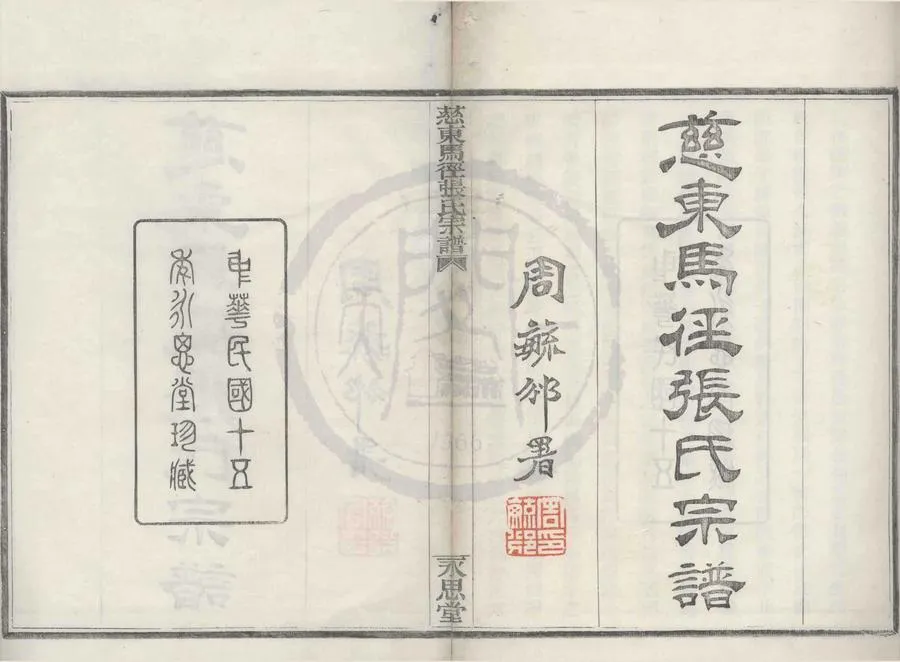 慈東馬徑張氏宗譜
周毓邠署
周印毓邠
慈東馬徑張氏宗譜
永思堂
中華民國十五
年永思堂珍藏